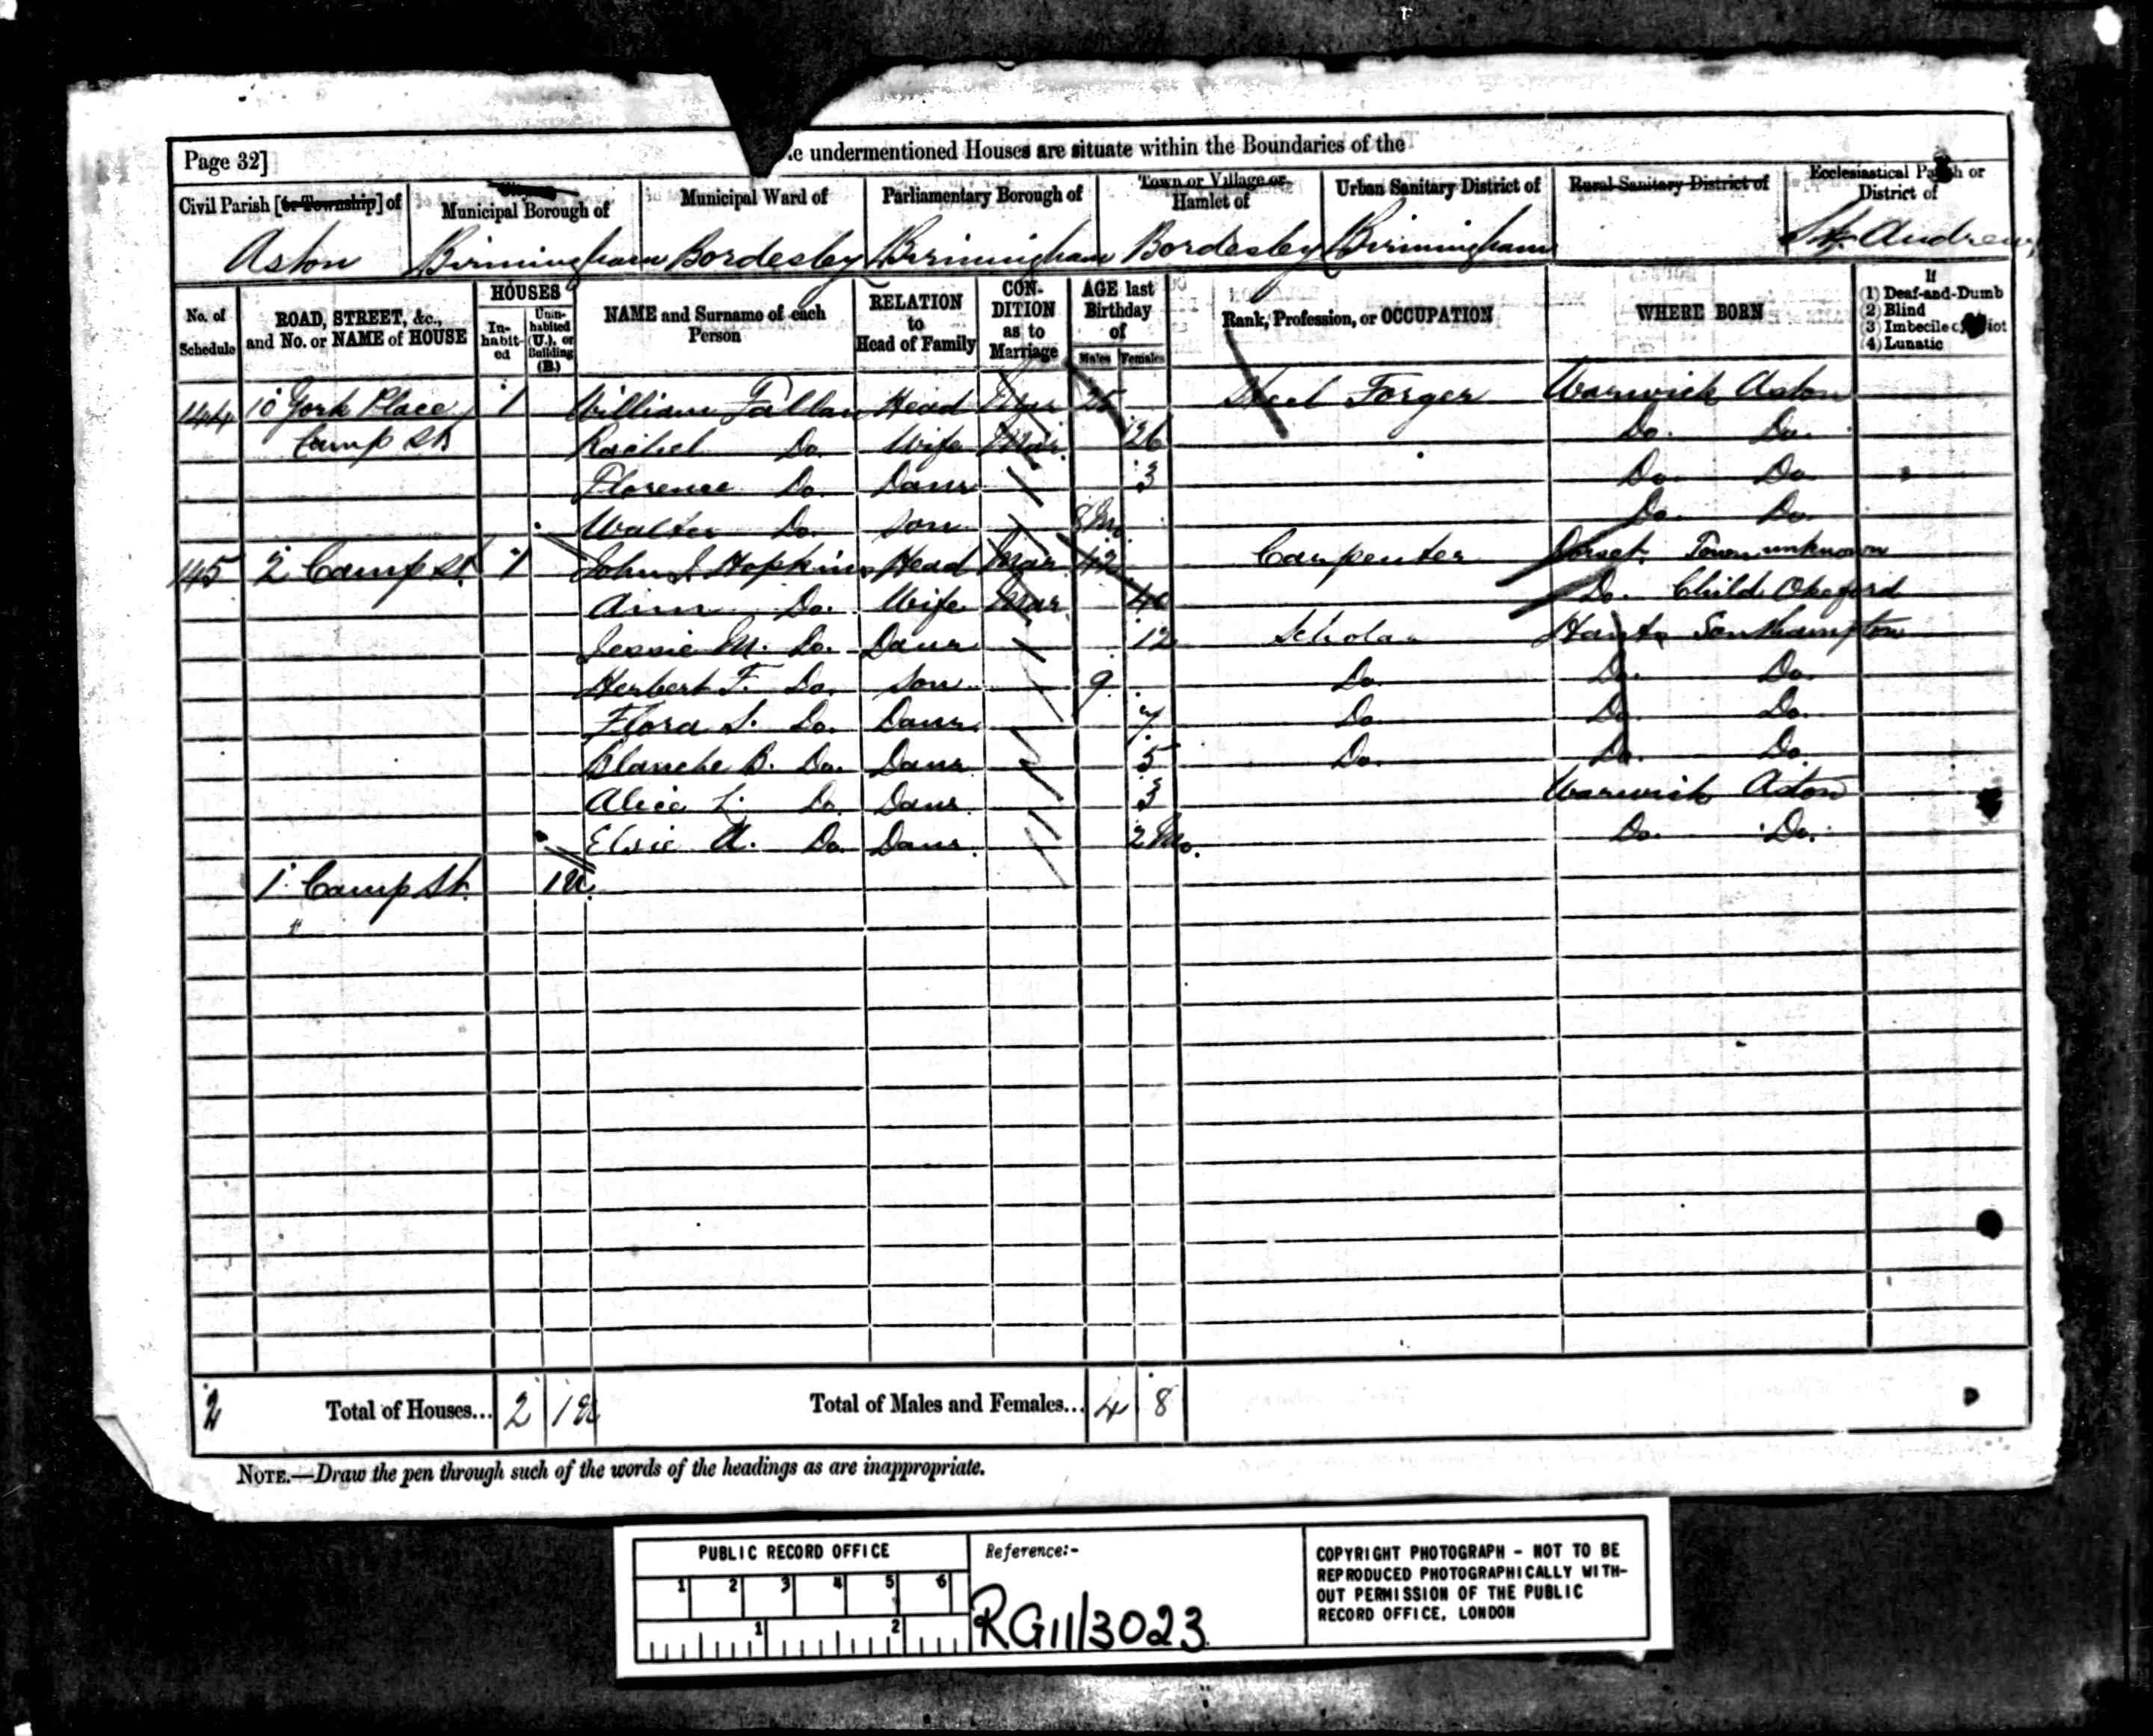 Page 32]
e undermentioned Houses are situate within the Boundaries of the
Civil Parish [or Township] of
Municipal Borough of
Municipal Ward of
Parliamentary Borough of
Town or Village or Hamlet of
Urban Sanitary District of
Rural Sanitary District of
Ecclesiastical Parish or District of
Aston Birmingham Bordesley Birmingham Bordesley Birmingham St Andrews
No. of Schedule
ROAD, STREET, &c., and No. or NAME of HOUSE
HOUSES
In-habit-ed
Unin-habited (U.), or Building (B.)
NAME and Surname of each Person
RELATION to Head of Family
CON-DITION as to Marriage
AGE last Birthday of
Males Females
Rank, Profession, or OCCUPATION
WHERE BORN
If
(1) Deaf-and-Dumb
(2) Blind
(3) Imbecile or Idiot
(4) Lunatic
144 10 York Place 1 William Fallan Head Mar 25 Steel Forger Warwick Aston
Camp St Rachel Do. Wife Mar. 26 Do. Do.
Florence Do. Daur 3 Do. Do.
Walter Do. Son 8 Mo Do. Do.
145 2 Camp St. 1 John J. Hopkins Head Mar 42 Carpenter Dorset Town unknown
Ann Do. Wife Mar 40 Do. Child Okeford
Jessie M. Do. Daur 12 Scholar Hants Southampton
Herbert F. Do. Son 9 Do. Do. Do.
Flora S. Do. Daur 7 Do Do. Do.
Blanche B. Do. Daur 5 Do. Do. Do.
Alice L. Do. Daur 3 Warwick Aston
Elsie A. Do. Daur. 2 Mo. Do. Do.
1 Camp St. 1 U.
2 Total of Houses... 2 1 U Total of Males and Females... 4 8
NOTE.—Draw the pen through such of the words of the headings as are inappropriate.
PUBLIC RECORD OFFICE
1 2 3 4 5 6
1 2
Reference:-
RG11/3023
COPYRIGHT PHOTOGRAPH - NOT TO BE
REPRODUCED PHOTOGRAPHICALLY WITH-
OUT PERMISSION OF THE PUBLIC
RECORD OFFICE, LONDON